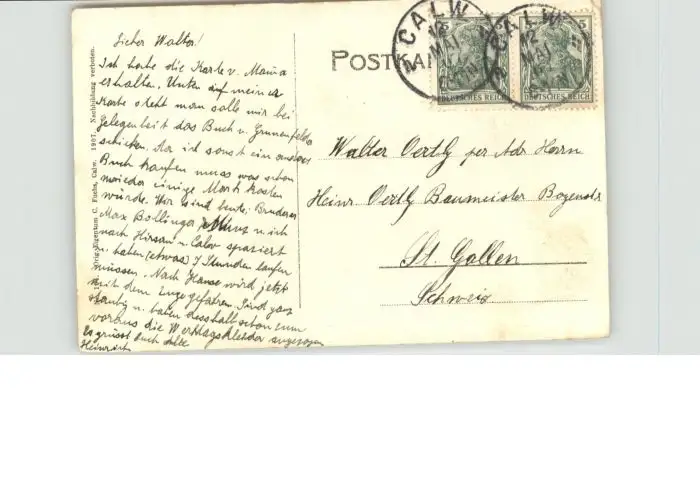 Lieber Walter!
Ich habe die Karte v. Mama
erhalten. Unten auf meiner
Karte steht man solle mir bei
Gelegenheit das Buch v. Grunenfelder
schicken. Da ich sonst ein anderes
Buch kaufen muss was schon
wieder einige Mark kosten
würde. Wir sind heute: Bruderer
Max Bollinger Munz u. ich
nach Hirsau u. Calw spaziert
u. haben (etwas) 7 Stunden laufen
müssen. Nach Hause wird jetzt
mit dem Zuge gefahren. Sind ganz
staubig u. haben desshalb schon zum
voraus die Werktagskleider angezogen
Es grüsst Euch Alle
Heinrich
Eigentum C. Fuchs, Calw. 1907. Nachbildung verboten.
POSTKA
CALW
12
MAI
5
DEUTSCHES REICH
CALW
12
MAI
5
DEUTSCHES REICH
Walter Oertly per Adr Herrn
Heinr Oertly Baumeister Bogenstr
St. Gallen
Schweiz